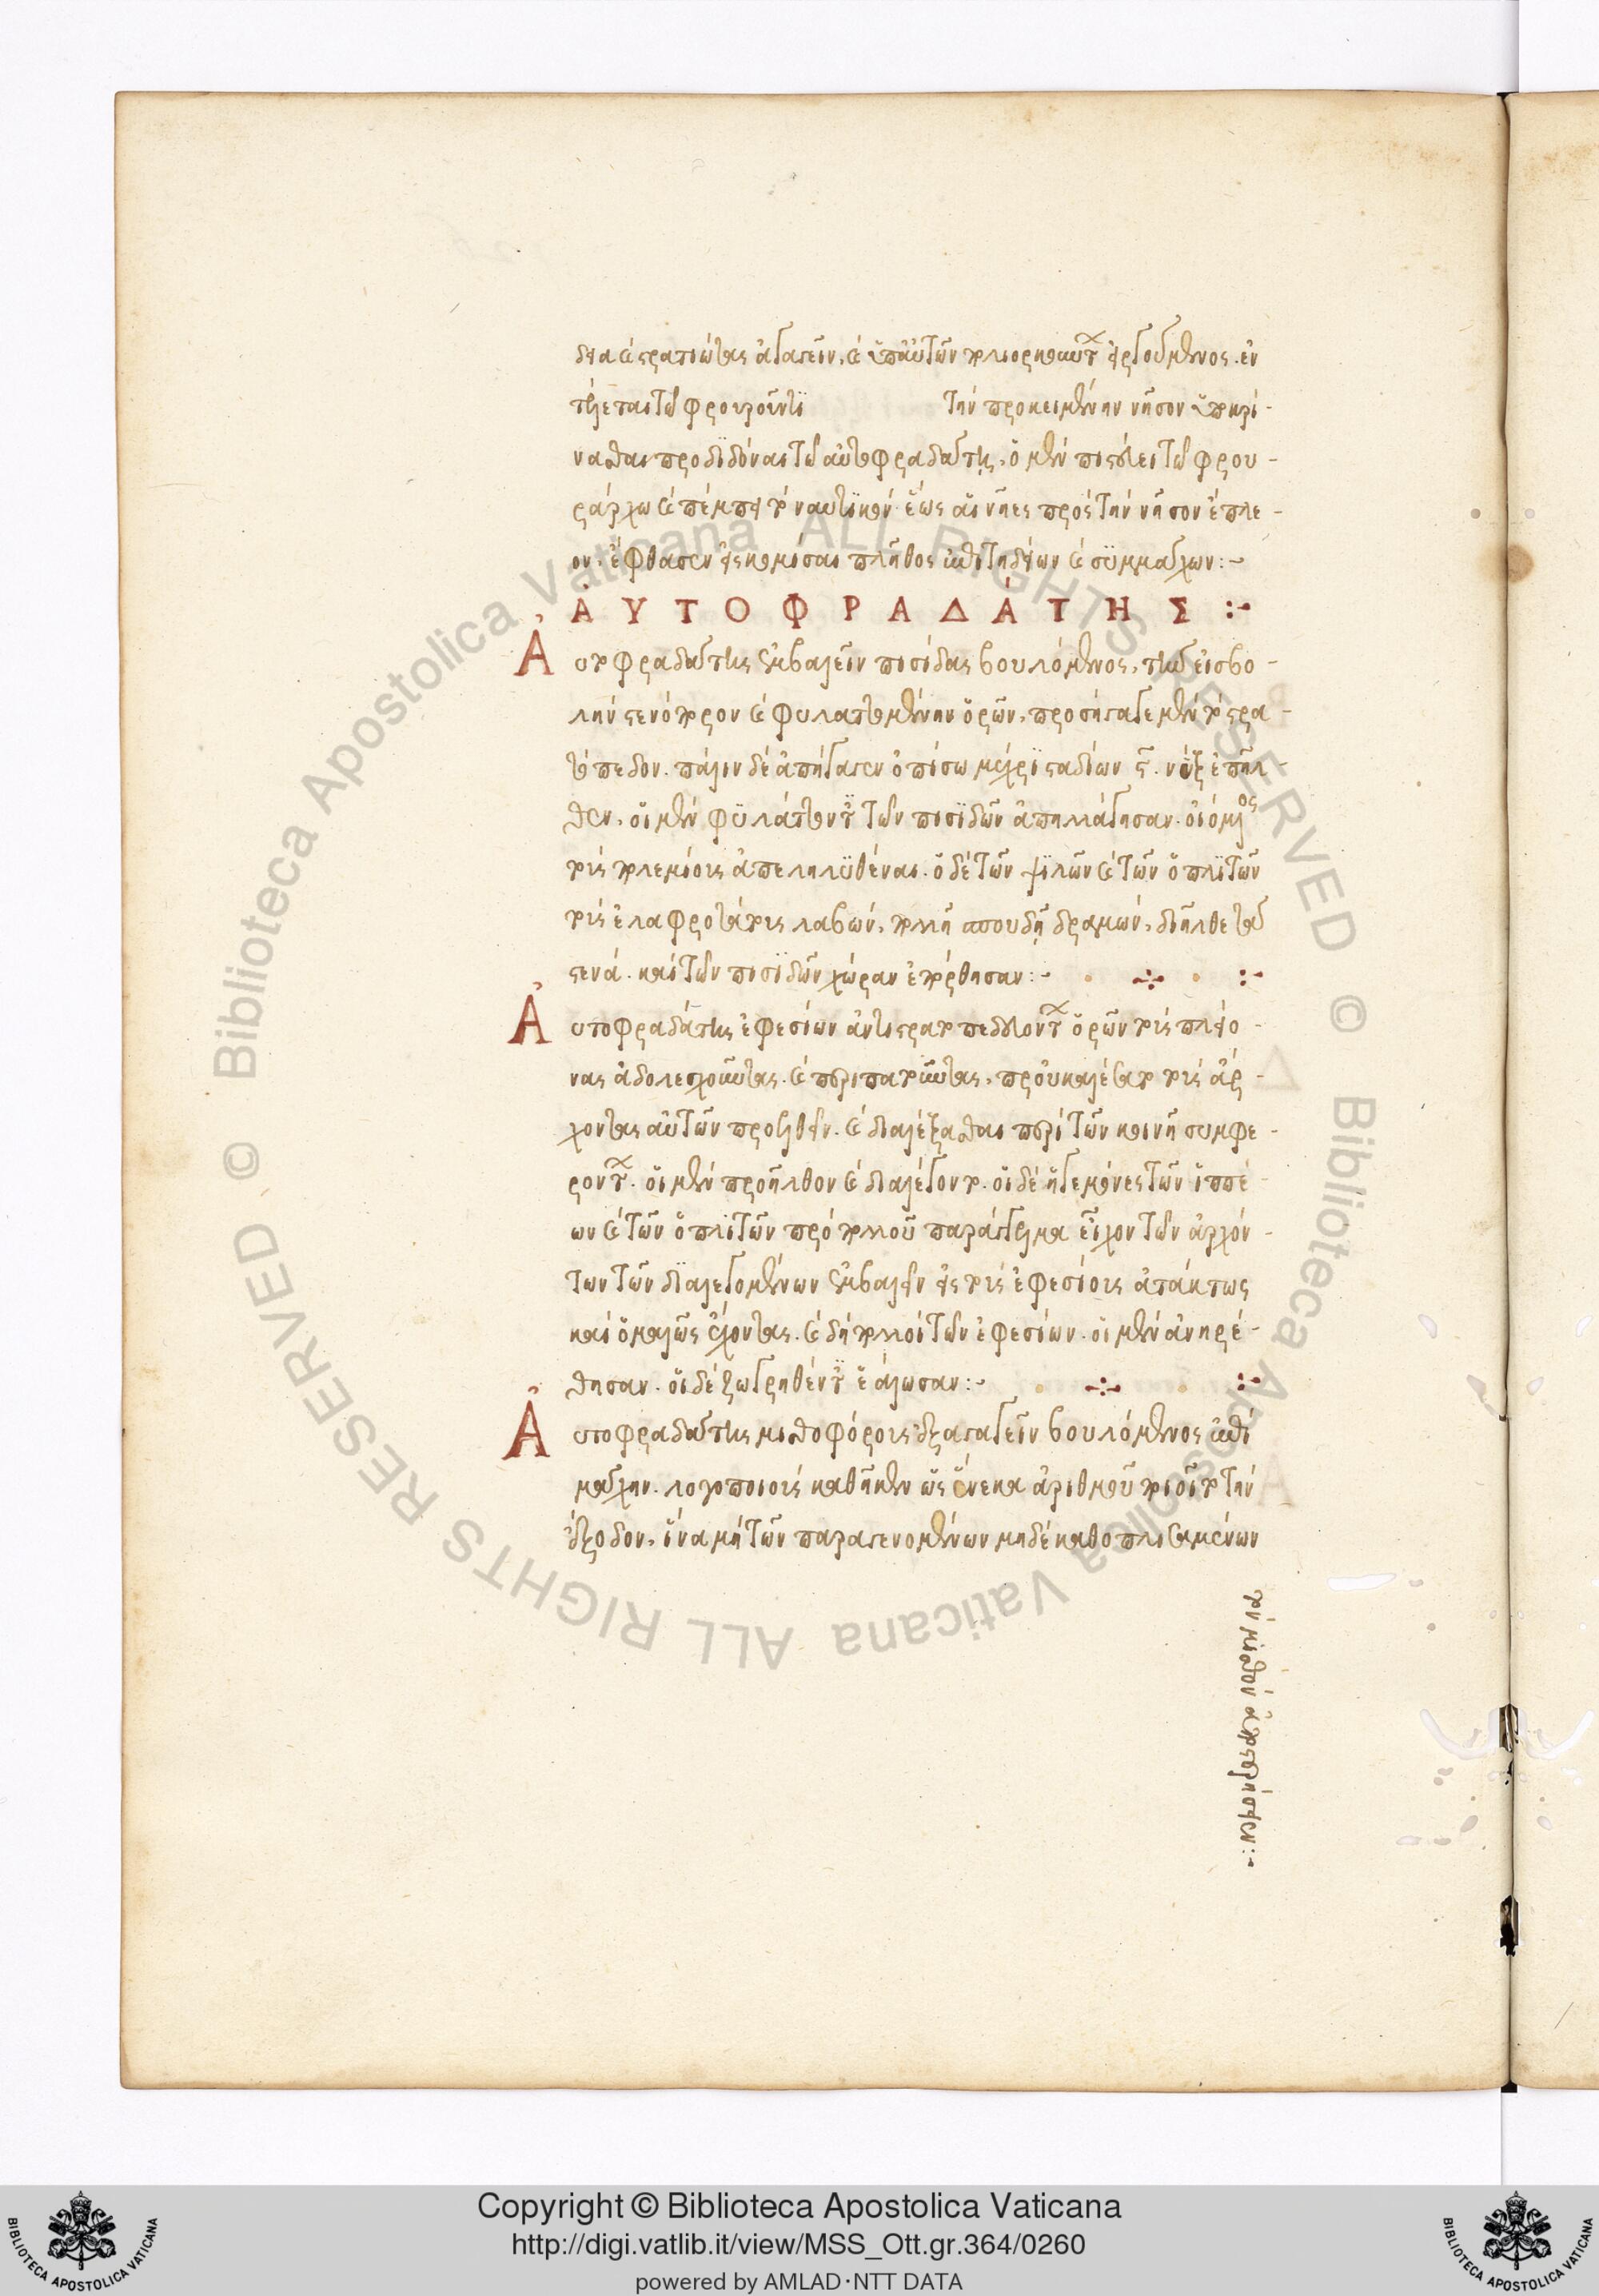 δεια καὶ στρατιώτας ἀγαγεῖν, καὶ ὑπ' αὐτῶν πολιορκοῦντος εἰργόμενος. ἐν
τίθεται τῷ φρουροῦντι τὴν προκειμένην νῆσον ὑποκρί-
νασθαι προδιδόναι τῷ αὐτοφραδάτῃ, ὁ μὲν πιστεύει τῷ φρου-
ράρχω καὶ πέμπει τὸ ναυτικόν. ἕως αἱ νῆες πρὸς τὴν νῆσον ἔπλε-
ον, ἔφθασεν εἰσκομίσαι πλῆθος ἐπιτηδείων καὶ συμμάχων:~
ΑΥΤΟΦΡΑΔΑΤΗΣ :~
Αὐτοφραδάτης ἐμβαλεῖν πισίδας βουλόμενος, τὴν εἰσβο-
λὴν στενόπορον καὶ φυλαττομένην ὁρῶν, προσήγαγε μὲν τὸ στρα-
τόπεδον. πάλιν δὲ ἀπήγαγεν ὀπίσω μέχρι σταδίων ϛ. νὺξ ἐπῆλ-
θεν, οἱ μὲν φυλάττοντες τῶν πισιδῶν ἀπηλλάγησαν. οἰόμενος
τοὺς πολεμίους ἀπεληλυθέναι. ὁ δὲ τῶν ψιλῶν καὶ τῶν ὁπλιτῶν
τοὺς ἐλαφροτάτους λαβών, πολλῇ σπουδῇ δραμών, διῆλθε τὰ
στενά. καὶ τῶν πισιδῶν χώραν ἐπόρθησαν:~
Αὐτοφραδάτης ἐφεσίων ἀντιστρατοπεδευόντων ὁρῶν τοὺς πλείο-
νας ἀδολεσχοῦντας. καὶ περιπατοῦντας, προὐκαλέσατο τοὺς ἄρ-
χοντας αὐτῶν προελθεῖν. καὶ διαλέξασθαι περὶ τῶν κοινῇ συμφε-
ρόντων. οἱ μὲν προῆλθον καὶ διαλέγοντο. οἱ δὲ ἡγεμόνες τῶν ἱππέ-
ων καὶ τῶν ὁπλιτῶν πρὸ πολλοῦ παράγγελμα εἶχον τῶν ἀρχόν-
των τῶν διαλεγομένων ἐμβαλεῖν εἰς τοὺς ἐφεσίους ἀτάκτως
καὶ ὁμαλῶς ἔχοντας. καὶ δὴ πολλοὶ τῶν ἐφεσίων. οἱ μὲν ἀνῃρέ-
θησαν. οἱ δὲ ζωγρηθέντες ἑάλωσαν:~
Αὐτοφραδάτης μισθοφόρους ἐξαγαγεῖν βουλόμενος ἐπὶ
μάχην. λογοποιοὺς καθῆκεν ὡς ἕνεκα ἀριθμοῦ ποιοῖτο τὴν
ἔξοδον, ἵνα μὴ τῶν παραγενομένων μηδὲ καθοπλισαμένων
τὸν μισθὸν ἀποστερήσειεν:~
Copyright © Biblioteca Apostolica Vaticana
http://digi.vatlib.it/view/MSS_Ott.gr.364/0260
powered by AMLAD·NTT DATA
BIBLIOTECA APOSTOLICA VATICANA
BIBLIOTECA APOSTOLICA VATICANA
© Biblioteca Apostolica Vaticana ALL RIGHTS RESERVED © Biblioteca Apostolica Vaticana ALL RIGHTS RESERVED